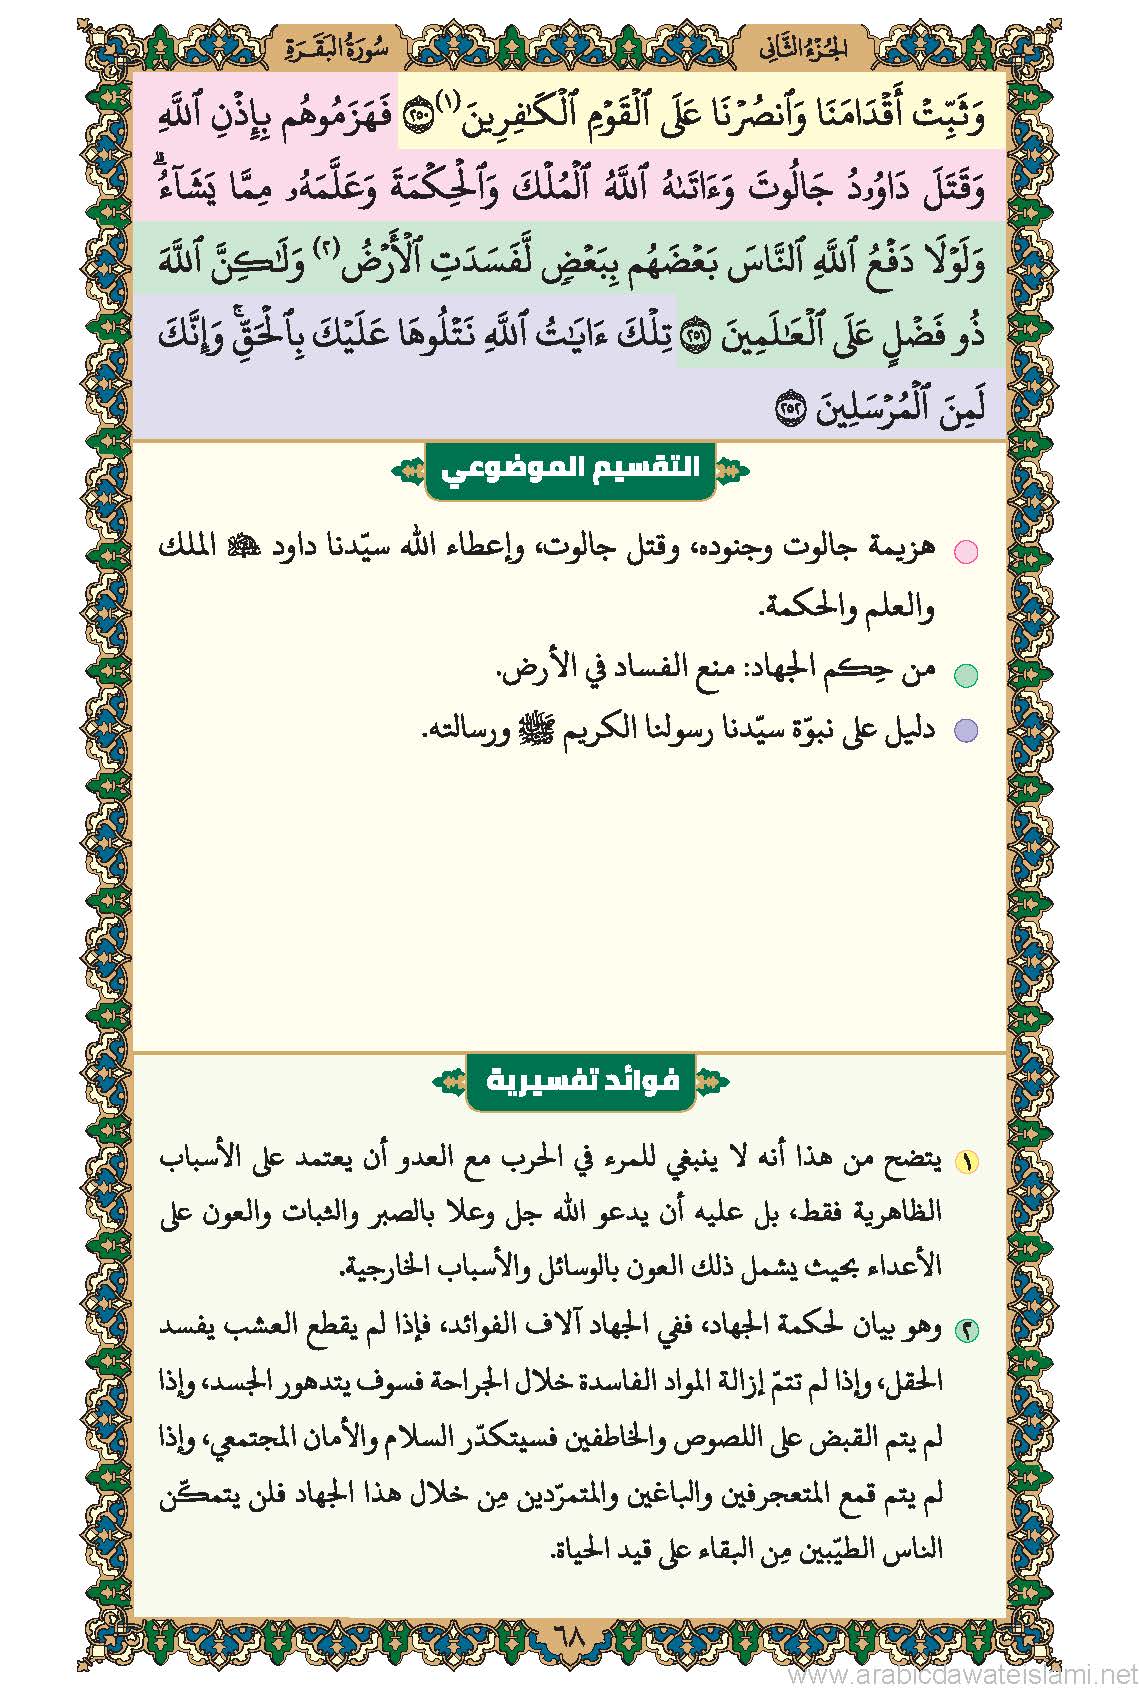 الجُزْءُ الثَّانِي
سُورَةُ البَقَرَةِ
وَثَبِّتْ أَقْدَامَنَا وَٱنصُرْنَا عَلَى ٱلْقَوْمِ ٱلْكَـٰفِرِينَ(١) ٢٥٠ فَهَزَمُوهُم بِإِذْنِ ٱللَّهِ
وَقَتَلَ دَاوُۥدُ جَالُوتَ وَءَاتَىٰهُ ٱللَّهُ ٱلْمُلْكَ وَٱلْحِكْمَةَ وَعَلَّمَهُۥ مِمَّا يَشَآءُ ۗ
وَلَوْلَا دَفْعُ ٱللَّهِ ٱلنَّاسَ بَعْضَهُم بِبَعْضٍ لَّفَسَدَتِ ٱلْأَرْضُ(٢) وَلَـٰكِنَّ ٱللَّهَ
ذُو فَضْلٍ عَلَى ٱلْعَـٰلَمِينَ ٢٥١ تِلْكَ ءَايَـٰتُ ٱللَّهِ نَتْلُوهَا عَلَيْكَ بِٱلْحَقِّ ۚ وَإِنَّكَ
لَمِنَ ٱلْمُرْسَلِينَ ٢٥٢
التقسيم الموضوعي
هزيمة جالوت وجنوده، وقتل جالوت، وإعطاء الله سيّدنا داود عليه السلام الملك
والعلم والحكمة.
من حِكم الجهاد: منع الفساد في الأرض.
دليل على نبوّة سيّدنا رسولنا الكريم ﷺ ورسالته.
فوائد تفسيرية
١ يتضح من هذا أنه لا ينبغي للمرء في الحرب مع العدو أن يعتمد على الأسباب
الظاهرية فقط، بل عليه أن يدعو الله جل وعلا بالصبر والثبات والعون على
الأعداء بحيث يشمل ذلك العون بالوسائل والأسباب الخارجية.
٢ وهو بيان لحكمة الجهاد، ففي الجهاد آلاف الفوائد، فإذا لم يقطع العشب يفسد
الحقل، وإذا لم تتمّ إزالة المواد الفاسدة خلال الجراحة فسوف يتدهور الجسد، وإذا
لم يتم القبض على اللصوص والخاطفين فسيتكدّر السلام والأمان المجتمعي، وإذا
لم يتم قمع المتعجرفين والباغين والمتمرّدين مِن خلال هذا الجهاد فلن يتمكّن
الناس الطيّبين مِن البقاء على قيد الحياة.
٦٨
www.arabicdawateislami.net